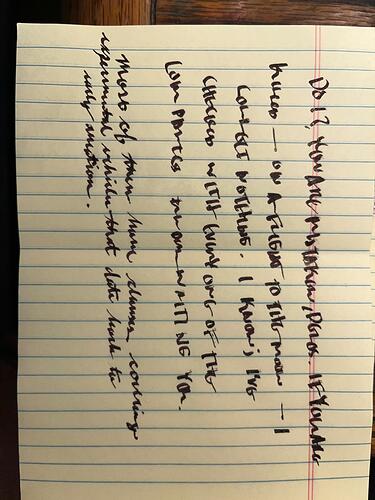 Do I?, You are mistaken, Delos. If you are
killed — on a flight to the moon — I
collect nothing. I know; I've
checked with every one of the
companies underwriting you.
Most of them have clauses covering
experimental vehicles that date back to
early aviation.